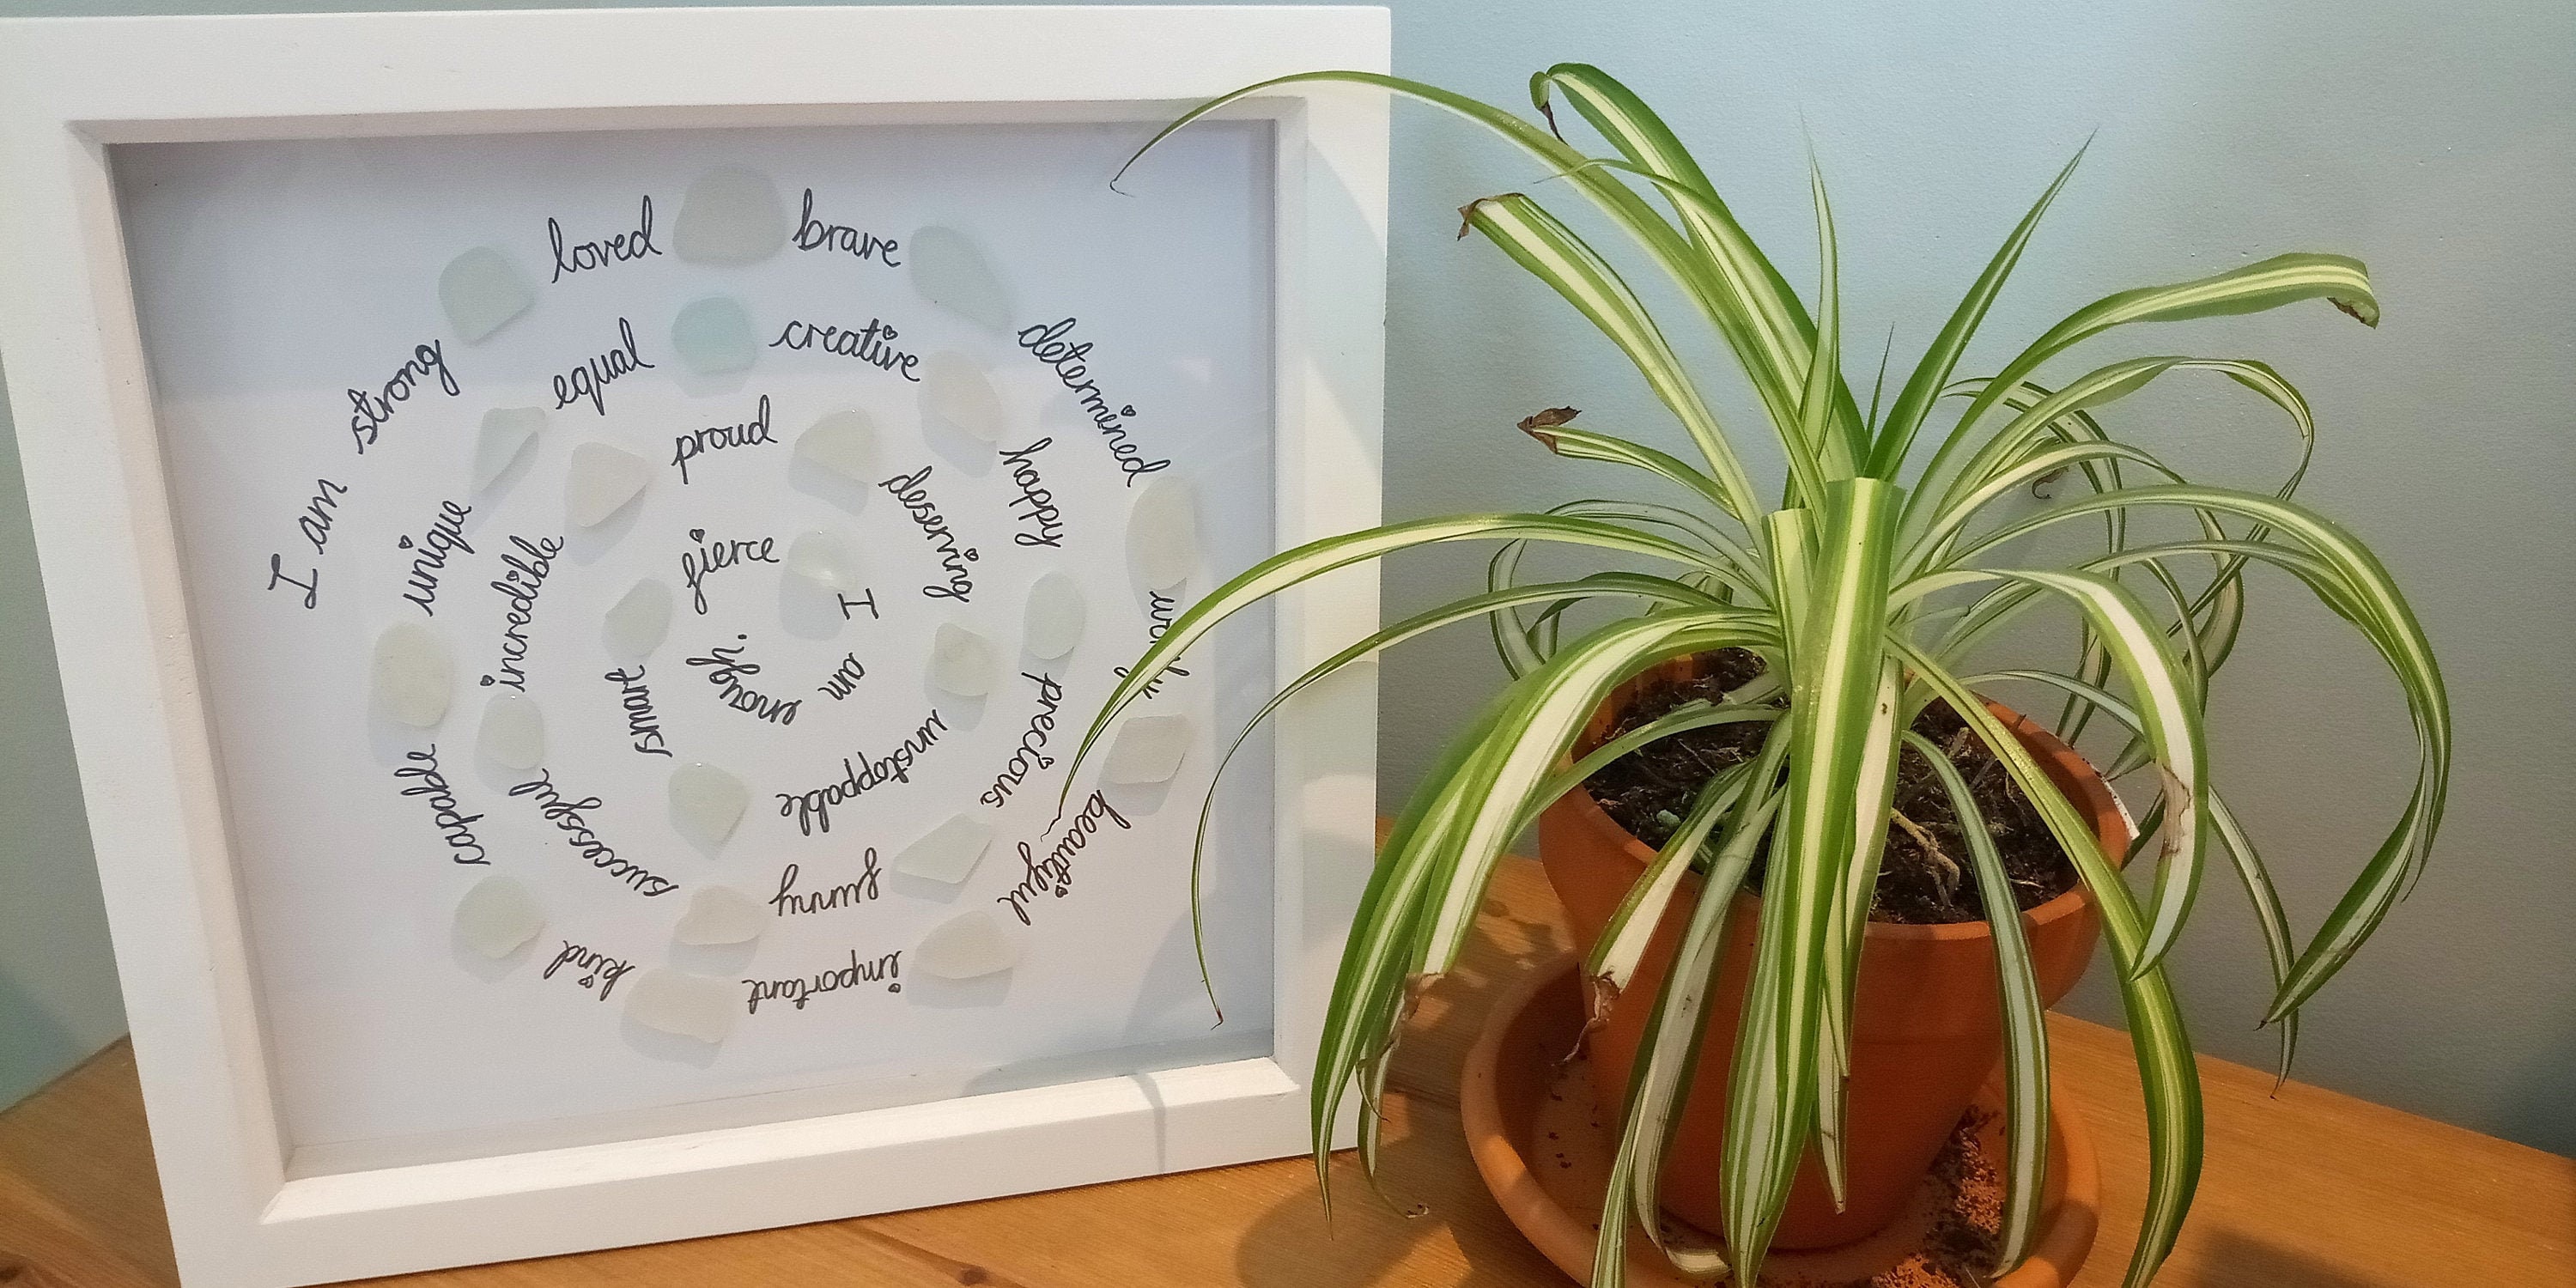 I am
strong
loved
brave
determined
worthy
beautiful
important
kind
capable
unique
equal
creative
happy
precious
funny
successful
incredible
proud
deserving
unstoppable
smart
fierce
I am
enough.